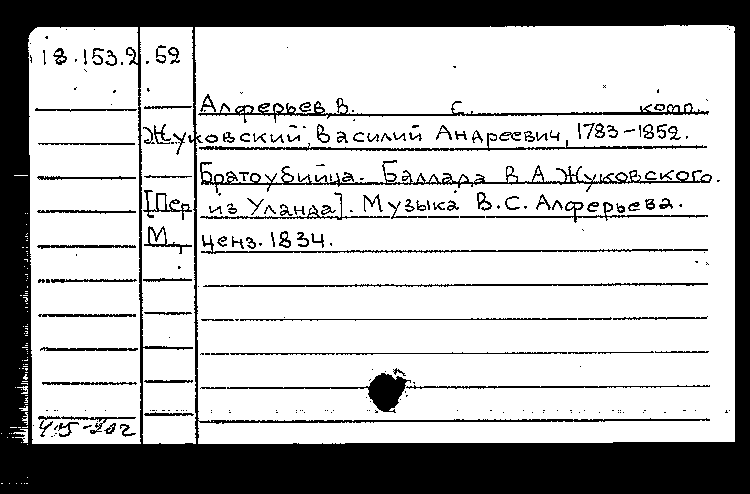 18.153.2.52
Алферьев, В. С. комп.
Жуковский, Василий Андреевич, 1783-1852.
Братоубийца. Баллада В А Жуковского.
[Пер. из Уланда]. Музыка В.С. Алферьева.
М., ценз. 1834.